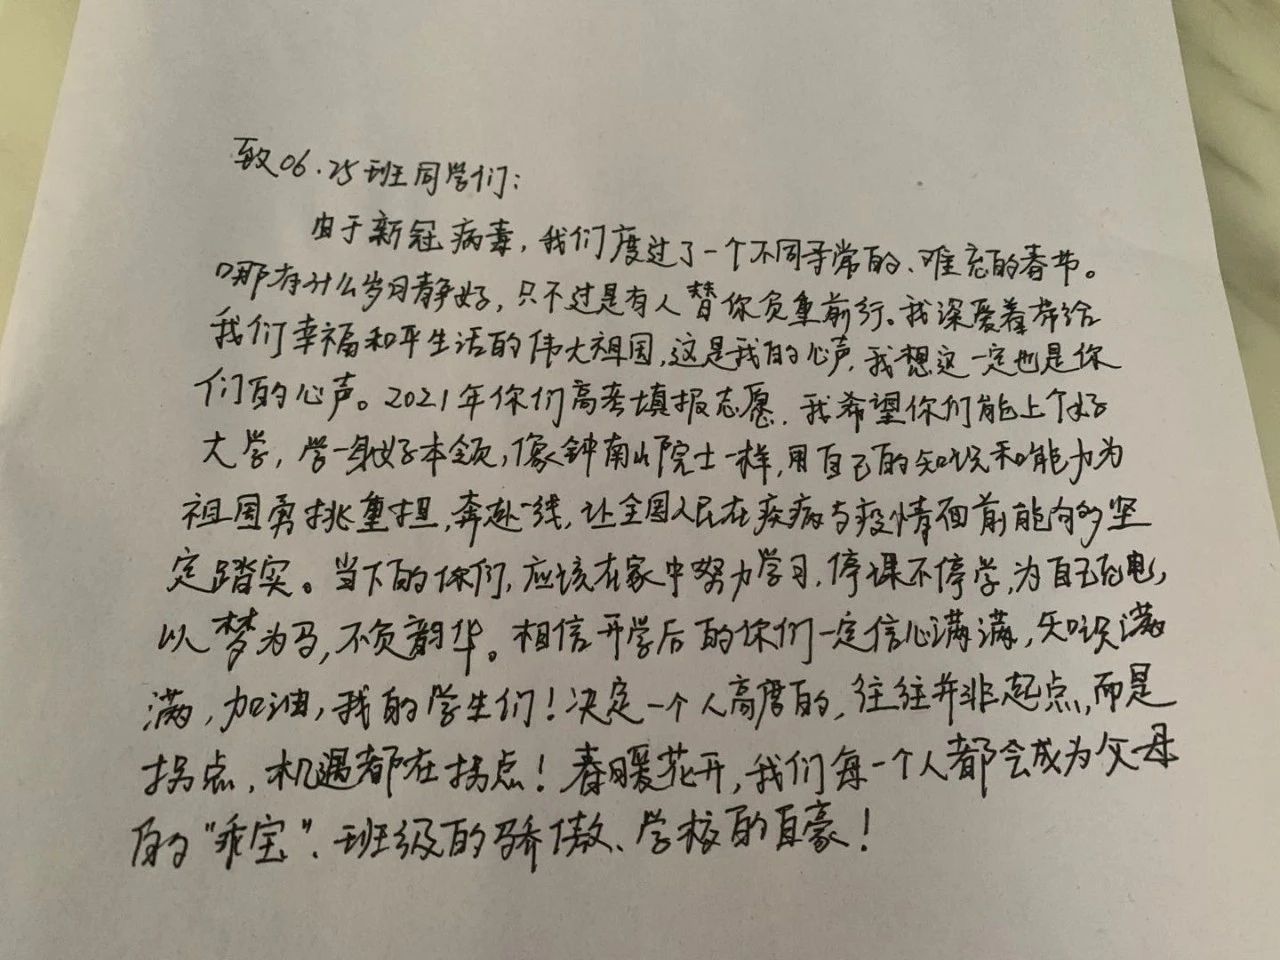 致06.25班同学们：
由于新冠病毒，我们度过了一个不同寻常的、难忘的春节。
哪有什么岁月静好，只不过是有人替你负重前行。我深爱着带给
我们幸福和平生活的伟大祖国，这是我的心声，我想这一定也是你
们的心声。2021年你们高考填报志愿，我希望你们能上个好
大学，学一身好本领，像钟南山院士一样，用自己的知识和能力为
祖国勇挑重担，奔赴一线，让全国人民在疾病与疫情面前能够坚
定踏实。当下的你们，应该在家中努力学习，停课不停学，为自己充电，
以梦为马，不负韶华。相信开学后的你们一定信心满满，知识满
满，加油，我的学生们！决定一个人高度的，往往并非起点，而是
拐点，机遇都在拐点！春暖花开，我们每一个人都会成为父母
的“乖宝”、班级的骄傲、学校的自豪！